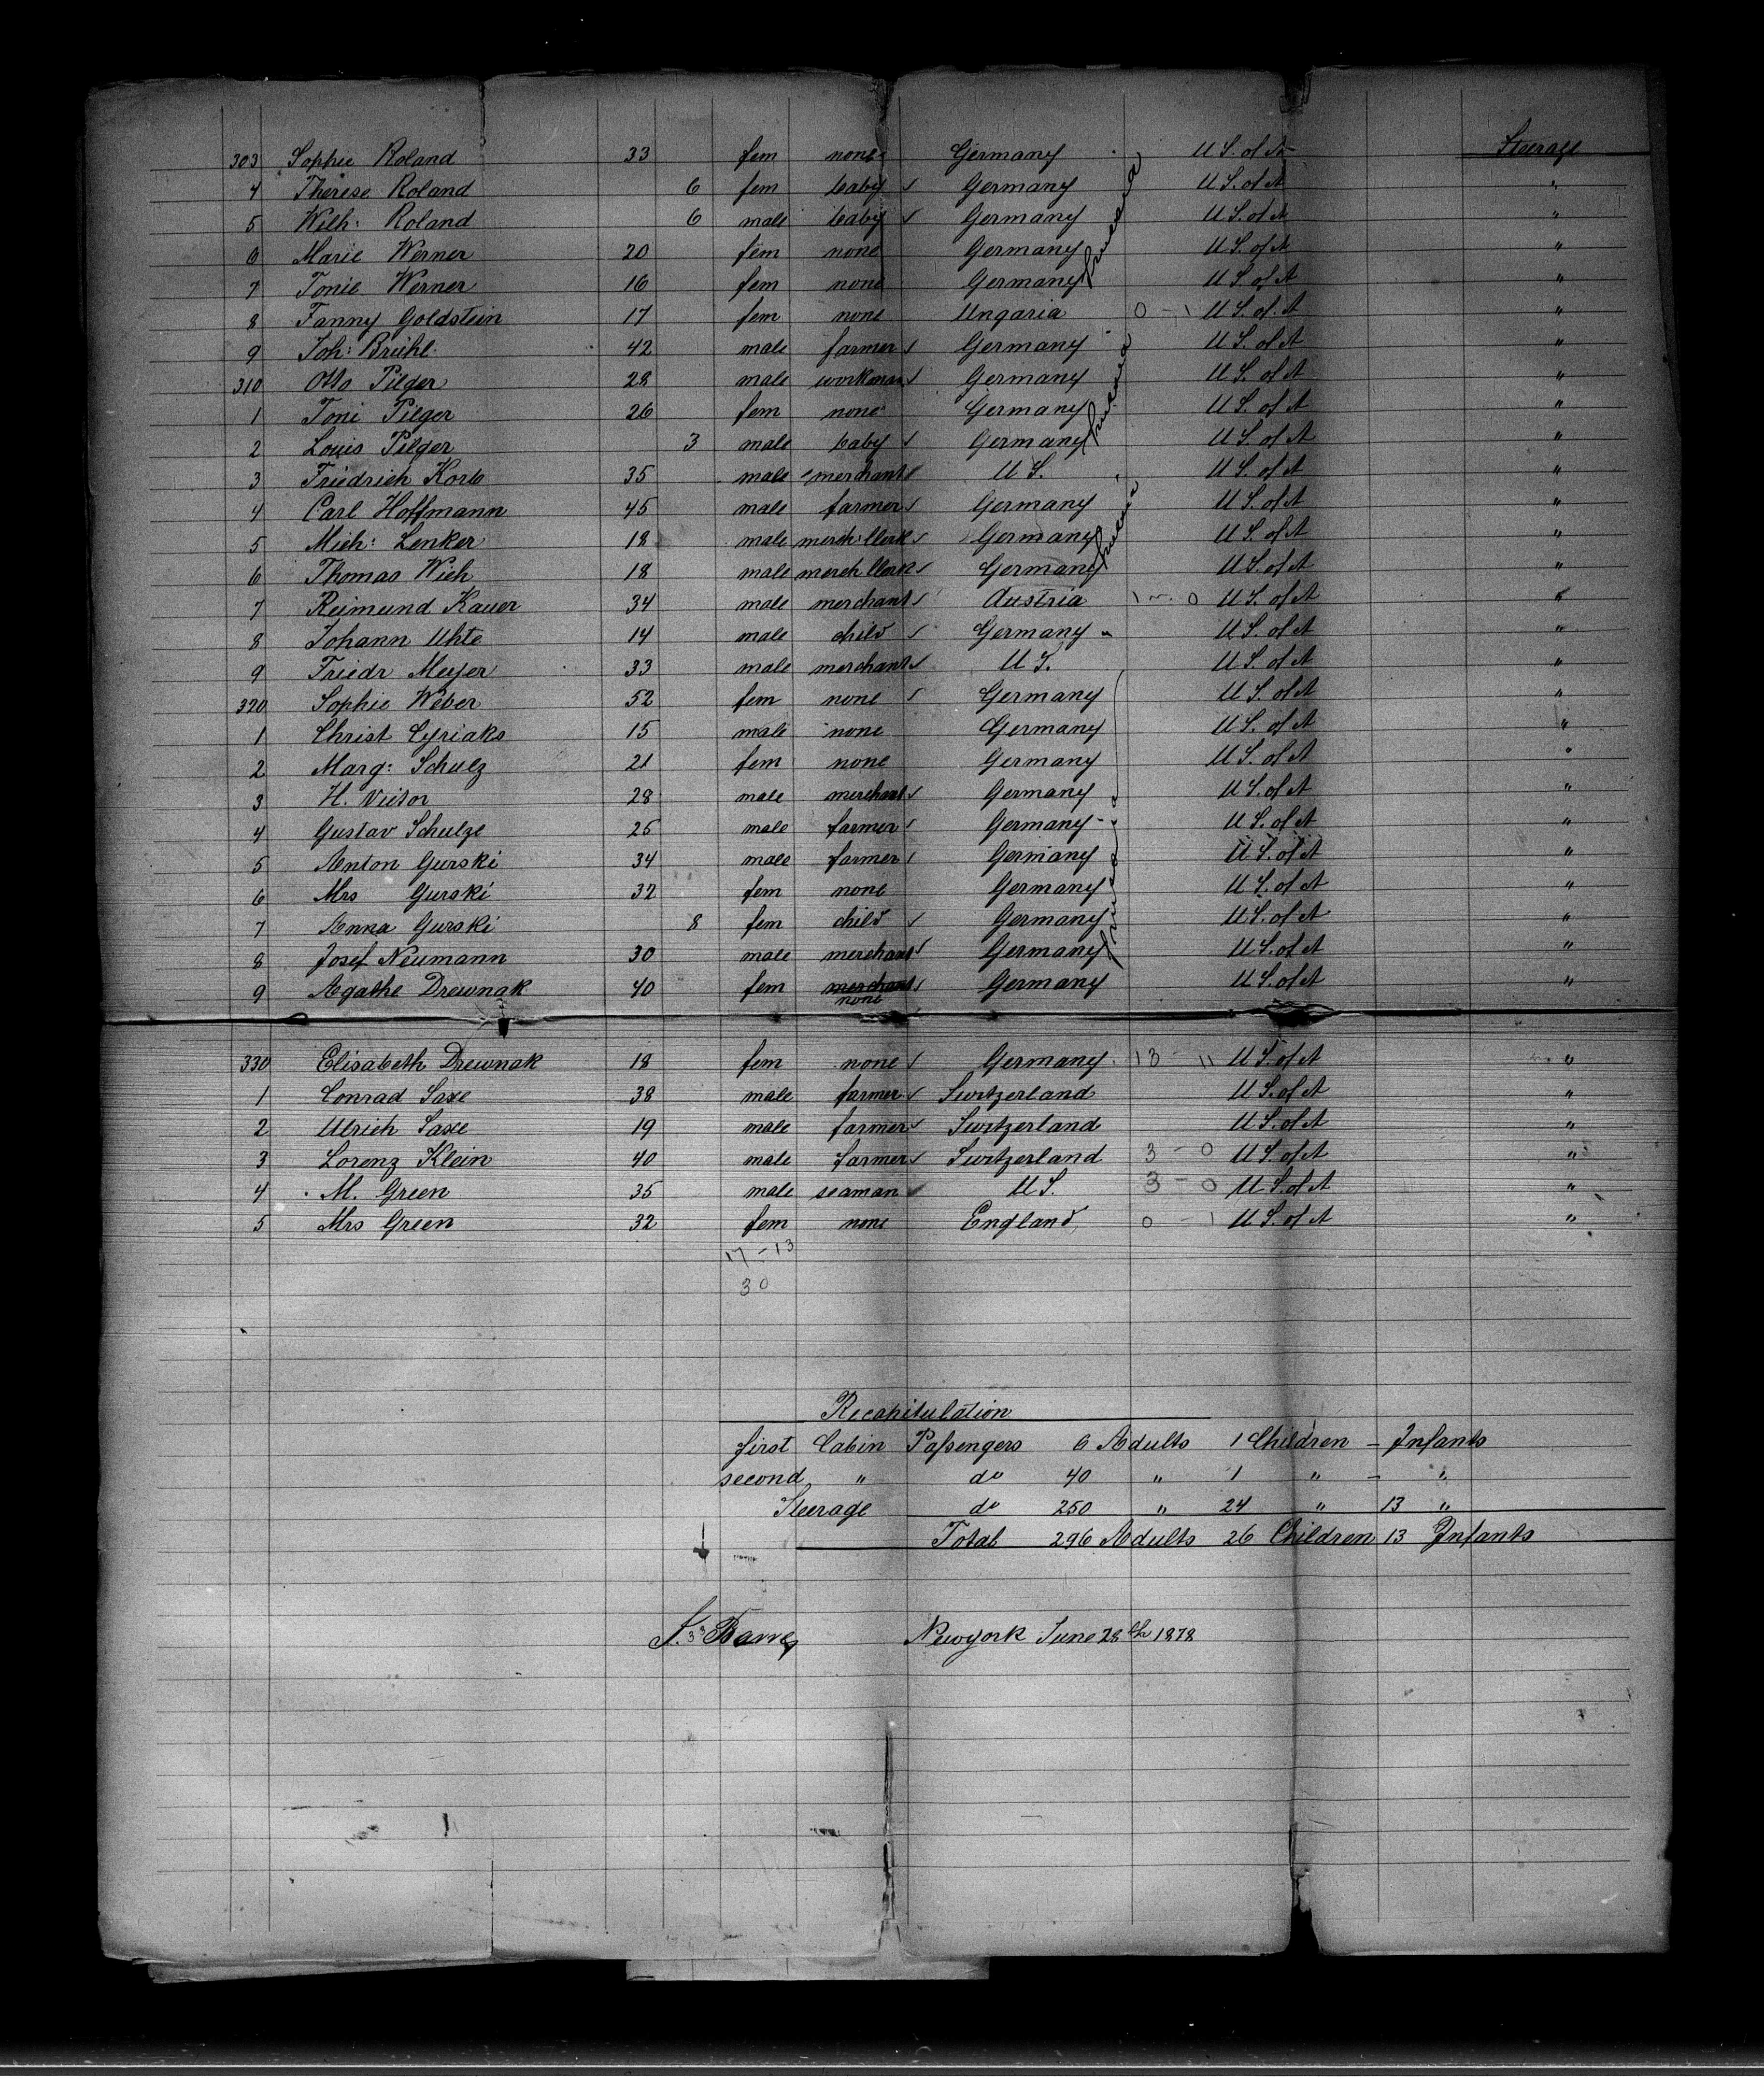 303 Sophie Roland 33 fem none Germany U S. of A Steerage
4 Therese Roland 6 fem baby Germany U S. of A "
5 Wilh: Roland 6 male baby Germany U S. of A "
6 Marie Werner 20 fem none Germany U S. of A "
7 Tonie Werner 16 fem none Germany prussia U S. of A "
8 Fanny Goldstein 17 fem none Ungaria 0 - 1 U S. of A "
9 Joh: Brühl 42 male farmer Germany U S. of A "
310 Otto Pilger 28 male workman Germany U S. of A "
1 Toni Pilger 26 fem none Germany U S. of A "
2 Louis Pilger 3 male baby Germany prussia U S. of A "
3 Friedrich Korb 35 male merchant U S. U S. of A "
4 Carl Hoffmann 45 male farmer Germany U S. of A "
5 Mich: Lenker 18 male merch: Clerk Germany U S. of A "
6 Thomas Wich 18 male merch Clerk Germany prussia U S. of A "
7 Reimund Kauer 34 male merchant Austria 1 - 0 U S. of A "
8 Johann Uhte 14 male child Germany U S. of A "
9 Friedr Meyer 33 male merchant U S. U S. of A "
320 Sophie Weber 52 fem none Germany U S. of A "
1 Christ Cyriaks 15 male none Germany U S. of A "
2 Marg: Schulz 21 fem none Germany U S. of A "
3 H. Vietor 28 male merchant Germany U S. of A "
4 Gustav Schulze 25 male farmer Germany U S. of A "
5 Anton Gurski 34 male farmer Germany U S. of A "
6 Mrs Gurski 32 fem none Germany U S. of A "
7 Anna Gurski 8 fem child Germany U S. of A "
8 Josef Neumann 30 male merchant Germany prussia U S. of A "
9 Agathe Drewnak 40 fem merchant none Germany U S. of A "
330 Elisabeth Drewnak 18 fem none Germany 13 - 11 U S. of A "
1 Conrad Saxe 38 male farmer Switzerland U S. of A "
2 Ulrich Saxe 19 male farmer Switzerland U S. of A "
3 Lorenz Klein 40 male farmer Switzerland 3 - 0 U S. of A "
4 M. Green 35 male seaman U S. 3 - 0 U S. of A "
5 Mrs Green 32 fem none England 0 - 1 U S. of A "
17 - 13
30
Recapitulation
first Cabin Passengers 6 Adults 1 Children - Infants
second " do 40 " 1 " - "
Steerage do 250 " 24 " 13 "
Total 296 Adults 26 Children 13 Infants
Newyork June 28th 1878